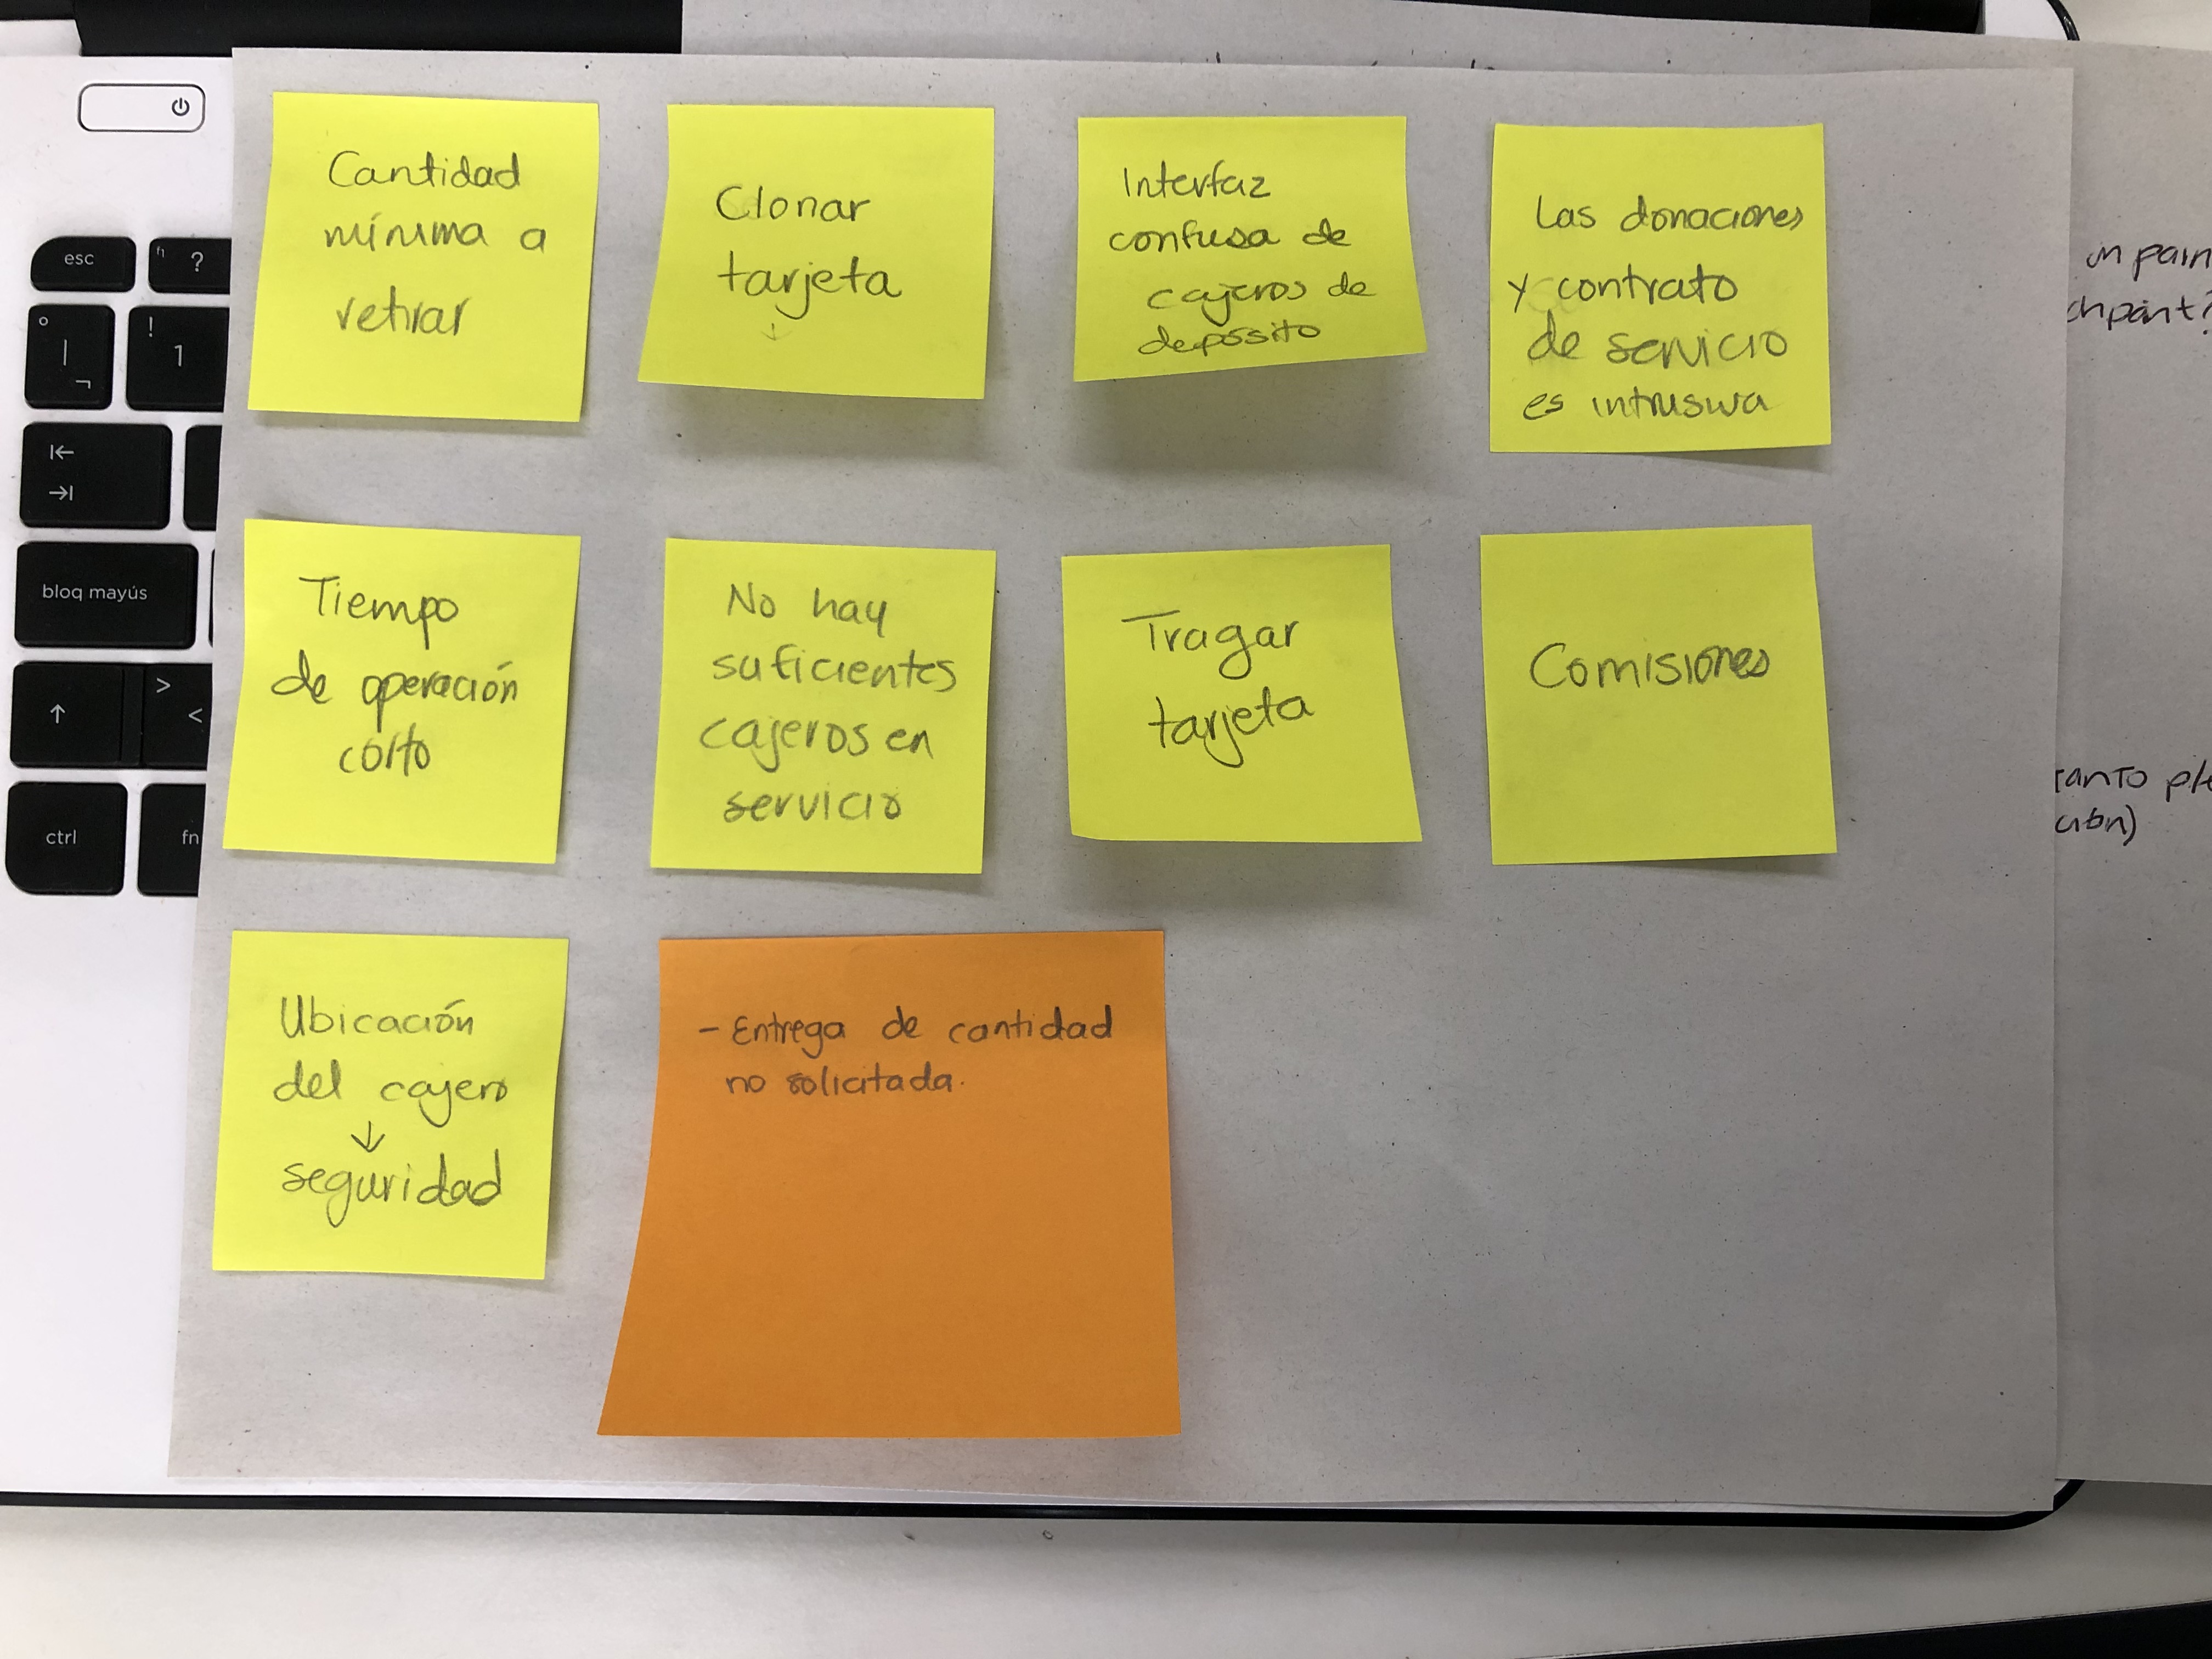 esc
° | ¬
! 1
f1 ?
bloq mayús
> <
ctrl
fn
Cantidad
mínima a
retirar
Clonar
tarjeta
Interfaz
confusa de
cajeros de
depósito
Las donaciones
y contrato
de servicio
es intrusiva
Tiempo
de operación
corto
No hay
suficientes
cajeros en
servicio
Tragar
tarjeta
Comisiones
Ubicación
del cajero
↓
seguridad
- Entrega de cantidad
no solicitada.